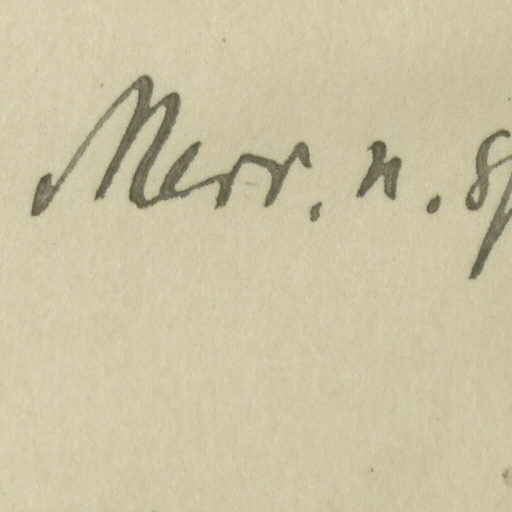 Merr. n. sp